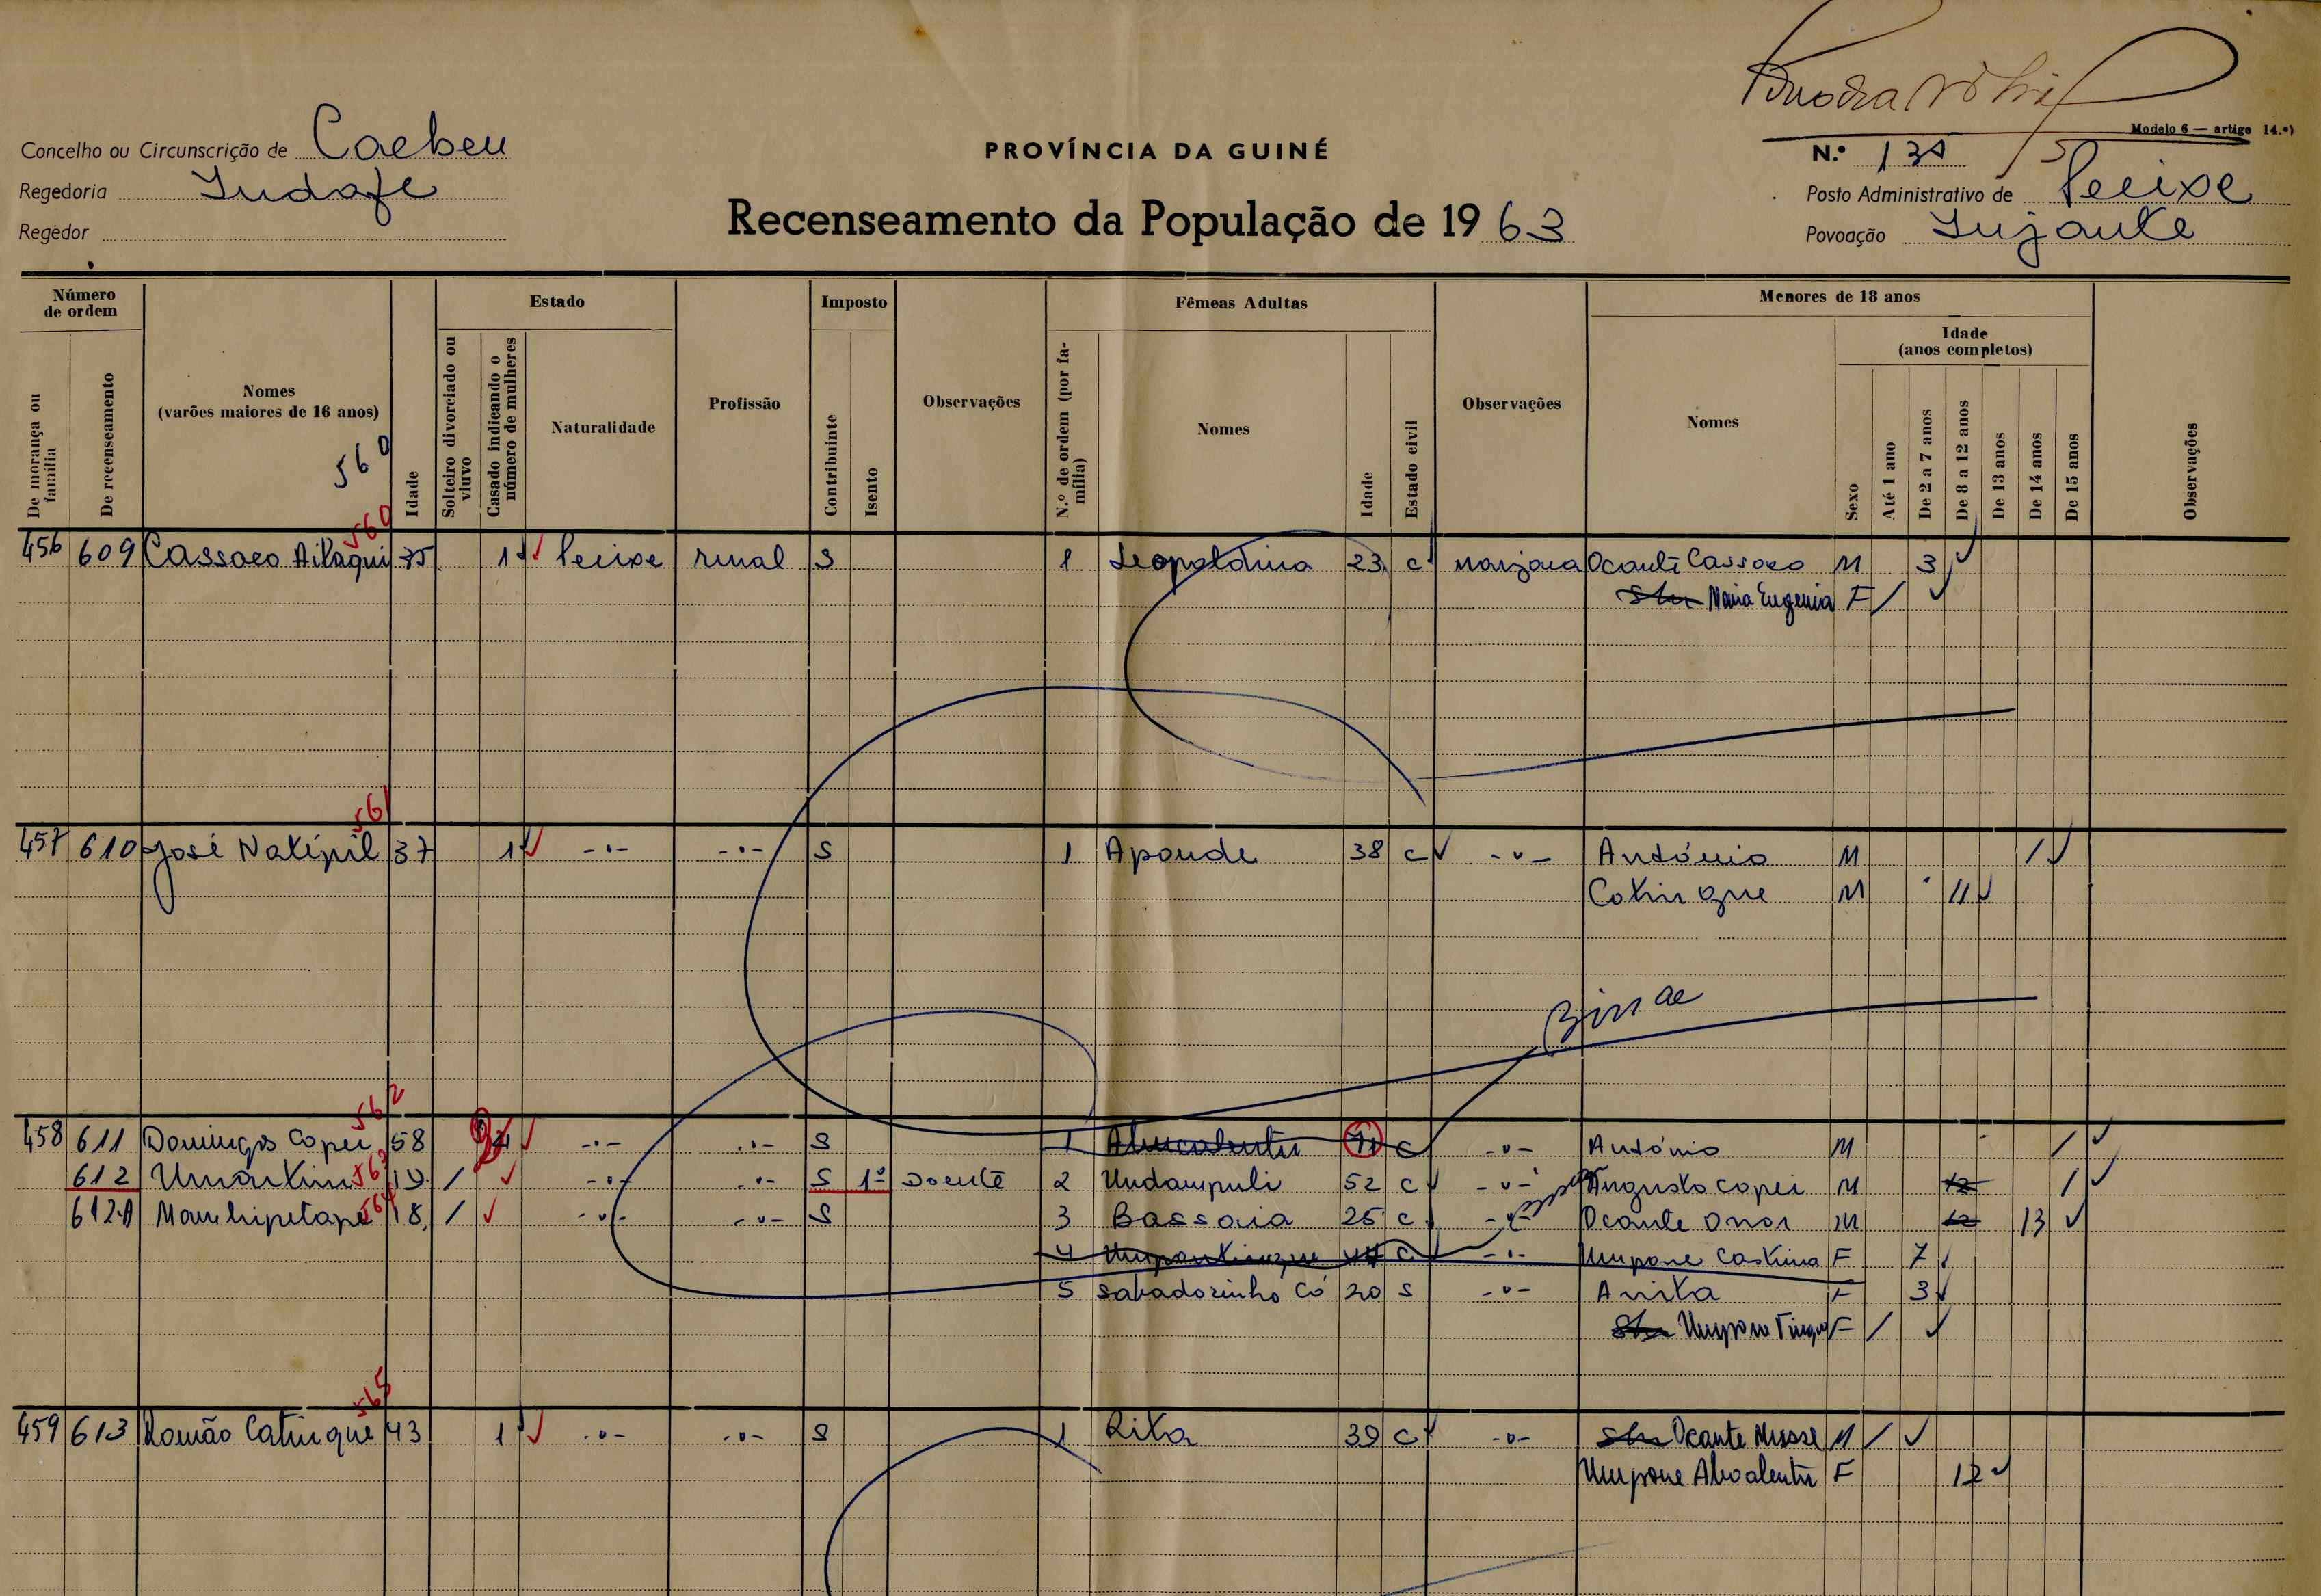 Modelo 6 — artigo 14.º)
Concelho ou Circunscrição de Caebeu
PROVÍNCIA DA GUINÉ
N.º
Regedoria
Posto Administrativo de Peeixe
Regedor
Recenseamento da População de 1963
Povoação
Número de ordem
Estado
Imposto
Fêmeas Adultas
Menores de 18 anos
Idade (anos completos)
De morança ou família
De recenseamento
Nomes (varões maiores de 16 anos)
Idade
Solteiro divorciado ou viuvo
Casado indicando o número de mulheres
Naturalidade
Profissão
Contribuinte
Isento
Observações
N.º de ordem (por família)
Nomes
Idade
Estado civil
Observações
Nomes
Sexo
Até 1 ano
De 2 a 7 anos
De 8 a 12 anos
De 13 anos
De 14 anos
De 15 anos
Observações
560
560
456 609 Cassaco Ailaqui 35 1 Peeixe rural S 1 Leopoldina 23 c manjaca Ocante Cassaco M 3
Maria Eugenia F /
561
457 610 José Natípil 37 1 -"- -"- S 1 Aponde 38 c -"- António M /
Catinque M 11
Binae
562
458 611 Domingos Copei 58 -"- -"- S 1 c -"- António M /
612 563 19 / -"- -"- S 1º Doente 2 Undampuli 52 c -"- Augusto Copei M 12 /
612-A 564 18 / -"- -"- S 3 Bassaia 25 c -"- Ocante M 12 13
4 c -"- Umpane F 7
5 Sabadozinho Có 20 S -"- Anita F 3
F /
565
459 613 Romão Catinque 43 1 -"- -"- S 1 Rita 39 c -"- Ocante Musse M /
Umpane F 12